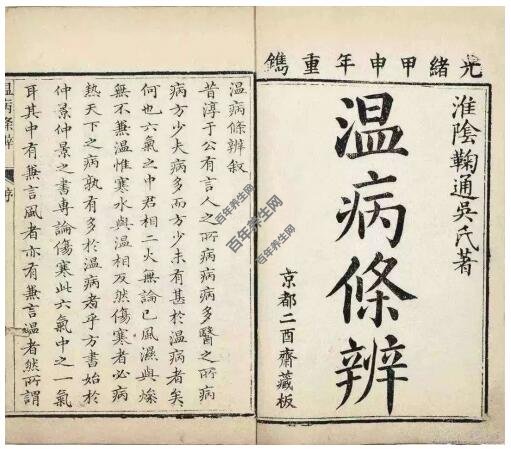 光緒甲申年重鐫
淮陰鞠通吳氏著
温病條辨
京都二酉齋藏板
温病條辨叙
昔淳于公有言人之所病病病多醫之所病
病方少夫病多而方少未有甚於温病者矣
何也六氣之中君相二火無論已風濕與燥
無不兼温惟寒水與温相反然傷寒者必病
熱天下之病孰有多於温病者乎方書始於
仲景仲景之書專論傷寒此六氣中之一氣
耳其中有兼言風者亦有兼言温者然所謂
温病條辨 序
百年养生网
百年养生网
百年养生网